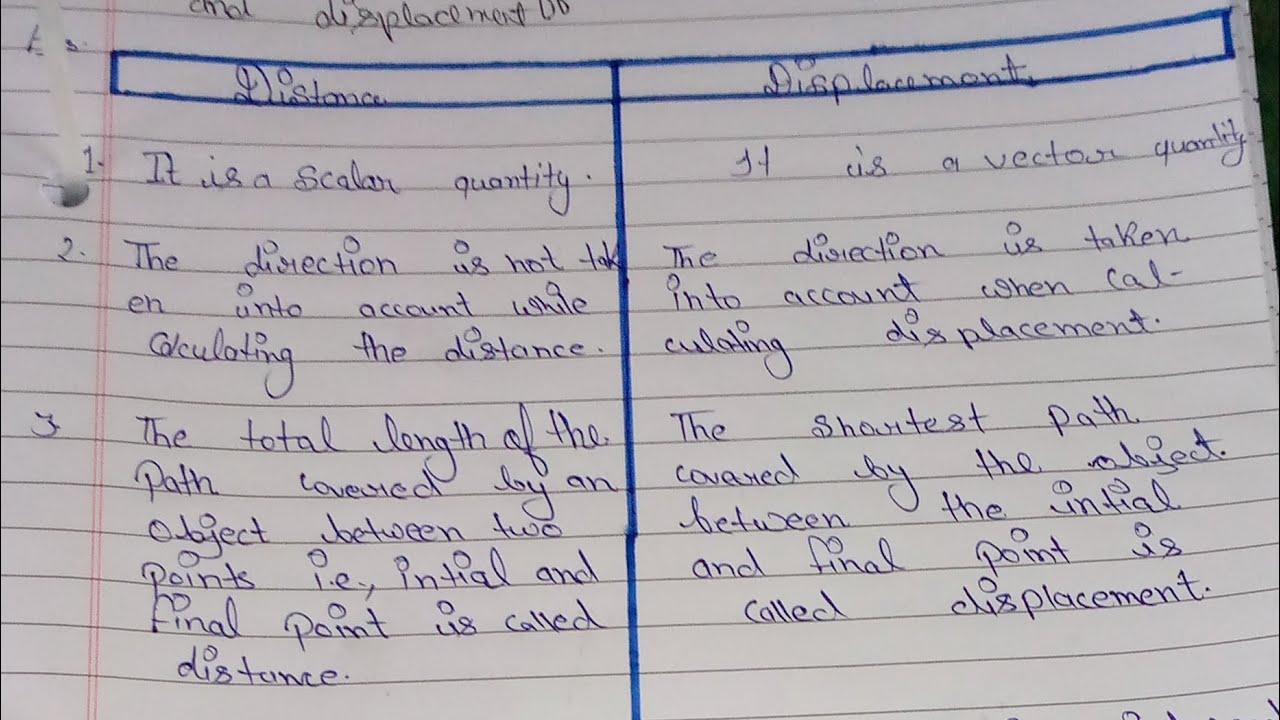 and displacement
Distance Displacement
1. It is a scalar quantity. It is a vector quantity
2. The direction is not tak The direction is taken
en into account while into account when cal-
calculating the distance. culating displacement.
3 The total length of the The shortest path
Path covered by an covered by the object.
object between two between the intial
points i.e., intial and and final point is
final point is called called displacement.
distance.